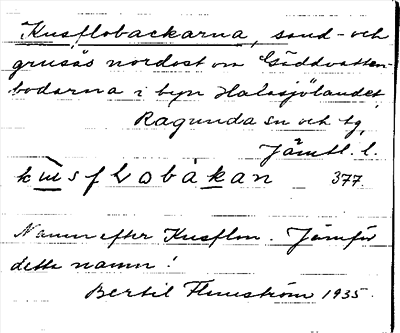 Kusflobackarna, sand- och
grusås nordost om Gäddvatten-
bodarna i byn Halasjölandet,
Ragunda sn och tg,
Jämtl. l.
kusfLobákan 377
Namn efter Kusflon. Jämför
detta namn!
Bertil Flemström 1935.